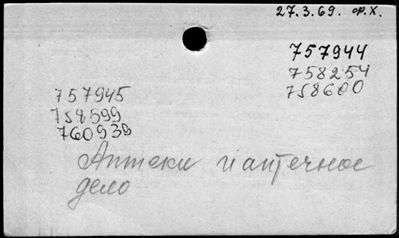 27.3.69. ор.Х.
757944
758254
758600
757945
758599
760939
Аптеки и аптечное
дело